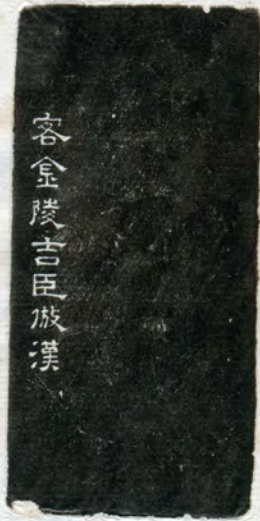 客金陵吉臣倣漢